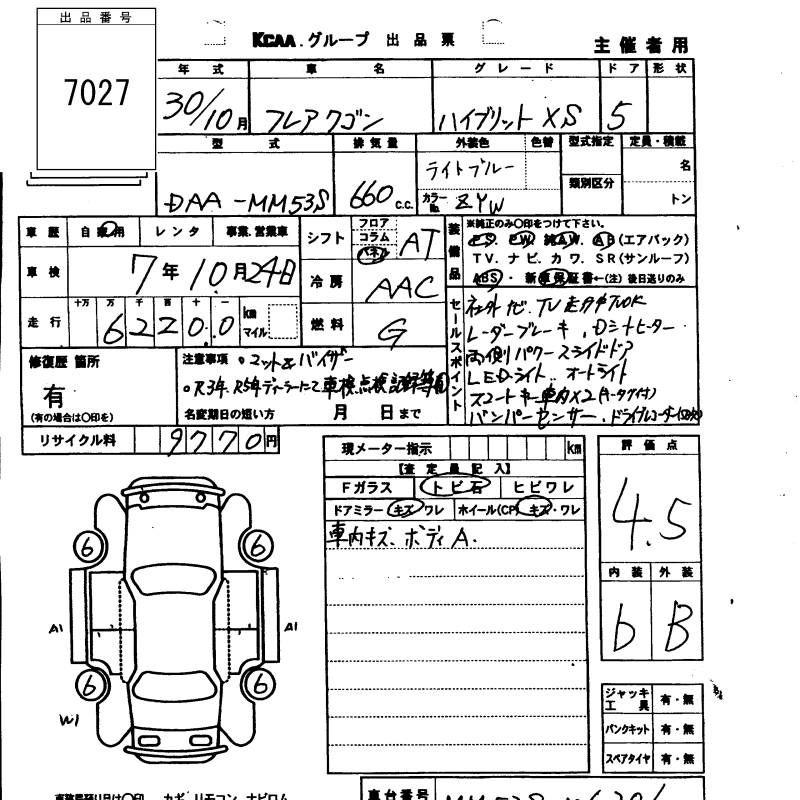 出品番号
7027
KCAA.グループ 出品票
主催者用
年式 車名 グレード ドア 形状
30/10月 フレアワゴン ハイブリット XS 5
型式 排気量 外装色 色替 型式指定 定員・積載
DAA-MM53S 660 c.c. ライトブルー 名
類別区分
カラーNo. ZYW トン
車歴 自家用 レンタ 事業.営業車
車検 7年10月24日
走行 十万 万 千 百 十 一
62200 km マイル
シフト フロア コラム パネル AT
冷房 AAC
燃料 G
装備品 ※純正のみ〇印をつけて下さい。
PS. PW. 純AW. AB(エアバック)
TV. ナビ. カワ. SR(サンルーフ)
ABS・新車保証書←(注)後日送りのみ
セールスポイント
社外ナビ.TV走行中TVOK
レーダーブレーキ.Dシートヒーター
両側パワースライドドア
LEDライト.オートライト
スマートキー車内×2
バンパーセンサー.ドライブレコーダー
修復歴 箇所
有
(有の場合は〇印を)
注意事項 。マット&バイザー
。R3年.R5年ディーラーにて車検点検記録簿有
名変期日の短い方 月 日まで
リサイクル料 9770円
現メーター指示 km
【査定員記入】
Fガラス トビ石 ヒビワレ
ドアミラー キズ・ワレ ホイール(CP) キズ・ワレ
車内キズ.ボディA.
評価点
4.5
内装 外装
b B
6 6
A1 A1
6 6
W1
ジャッキ 工具 有・無
パンクキット 有・無
スペアタイヤ 有・無
車台番号